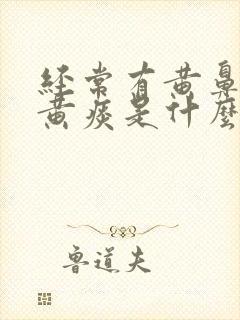 經常有黃鼻
黃痰是什麼
魯道夫